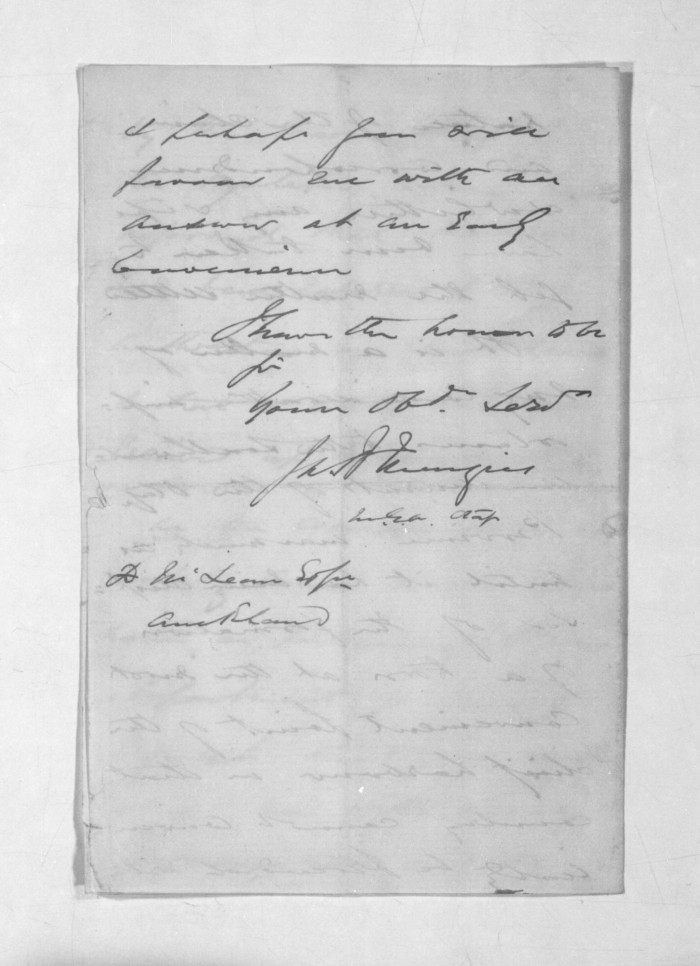 & perhaps you will
favour me with an
answer at an Early
Convenience
I have the honor to be
Sir
Your Obdt. Servt
D McLean Esqre
Auckland